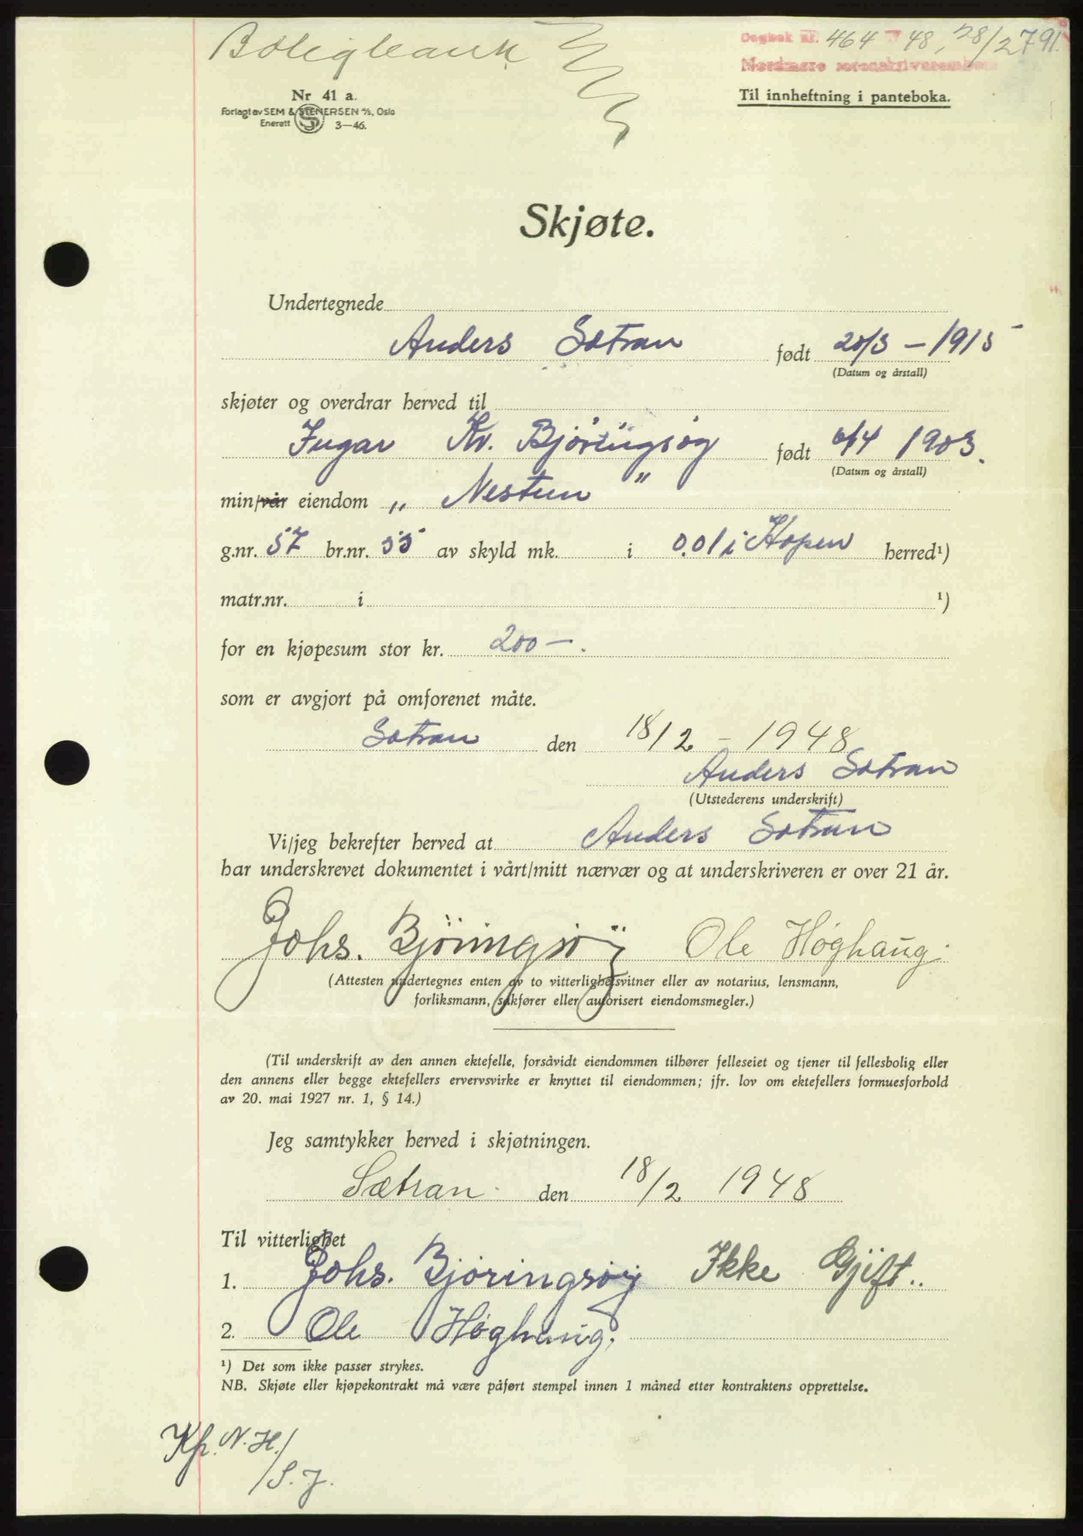 Boligbank
Dagbok nr. 464 48, 28/2 791.
Nordmøre sorenskriverembete
Nr 41 a.
Forlagt av SEM & STENERSEN A/S, Oslo
Enerett 3—46.
Til innheftning i panteboka.
Skjøte.
Undertegnede
Anders Sætran født 20/3 – 1915
(Datum og årstall)
skjøter og overdrar herved til
Ingar Kr. Bjøringsøg født 6/4 1903.
(Datum og årstall)
min/vår eiendom „ Nestun "
g.nr. 57 br.nr. 55 av skyld mk. i 0.01 i Hopen herred¹)
matr.nr. i ¹)
for en kjøpesum stor kr. 200 —.
som er avgjort på omforenet måte.
Sætran den 18/2 – 1948
Anders Sætran
(Utstederens underskrift)
Vi/jeg bekrefter herved at Anders Sætran
har underskrevet dokumentet i vårt/mitt nærvær og at underskriveren er over 21 år.
Johs. Björingsöy Ole Høghaug.
(Attesten undertegnes enten av to vitterlighetsvitner eller av notarius, lensmann,
forliksmann, sakfører eller autorisert eiendomsmegler.)
(Til underskrift av den annen ektefelle, forsåvidt eiendommen tilhører felleseiet og tjener til fellesbolig eller
den annens eller begge ektefellers ervervsvirke er knyttet til eiendommen; jfr. lov om ektefellers formuesforhold
av 20. mai 1927 nr. 1, § 14.)
Jeg samtykker herved i skjøtningen.
Sætran. den 18/2 1948
Til vitterlighet
1. Johs. Björingsöy Ikke Gjift..
2. Ole Høghaug.
¹) Det som ikke passer strykes.
NB. Skjøte eller kjøpekontrakt må være påført stempel innen 1 måned etter kontraktens opprettelse.
Kp. N.H./
/S.J.